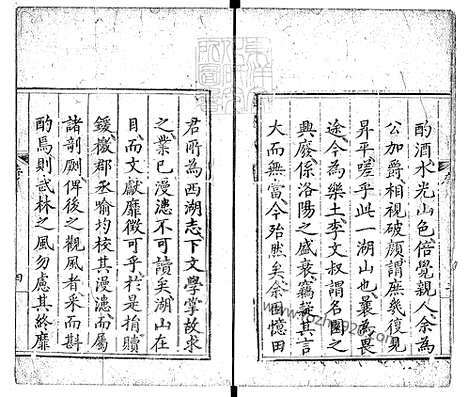 酌酒水光山色倍覺親人余為
公加爵相視破顏謂庶幾復見
昇平嗟乎此一湖山也曩為畏
途今為樂土李文叔謂名園之
興廢係洛陽之盛衰竊疑其言
大而無當今殆然矣余因憶田
君所為西湖志下文學掌故求
之業已漫漶不可讀矣湖山在
目而文獻靡徵可乎於是捐贖
鍰檄郡丞喻均校其漫漶而屬
諸剞劂俾後之觀風者采而斟
酌焉則武林之風勿慮其終靡
四